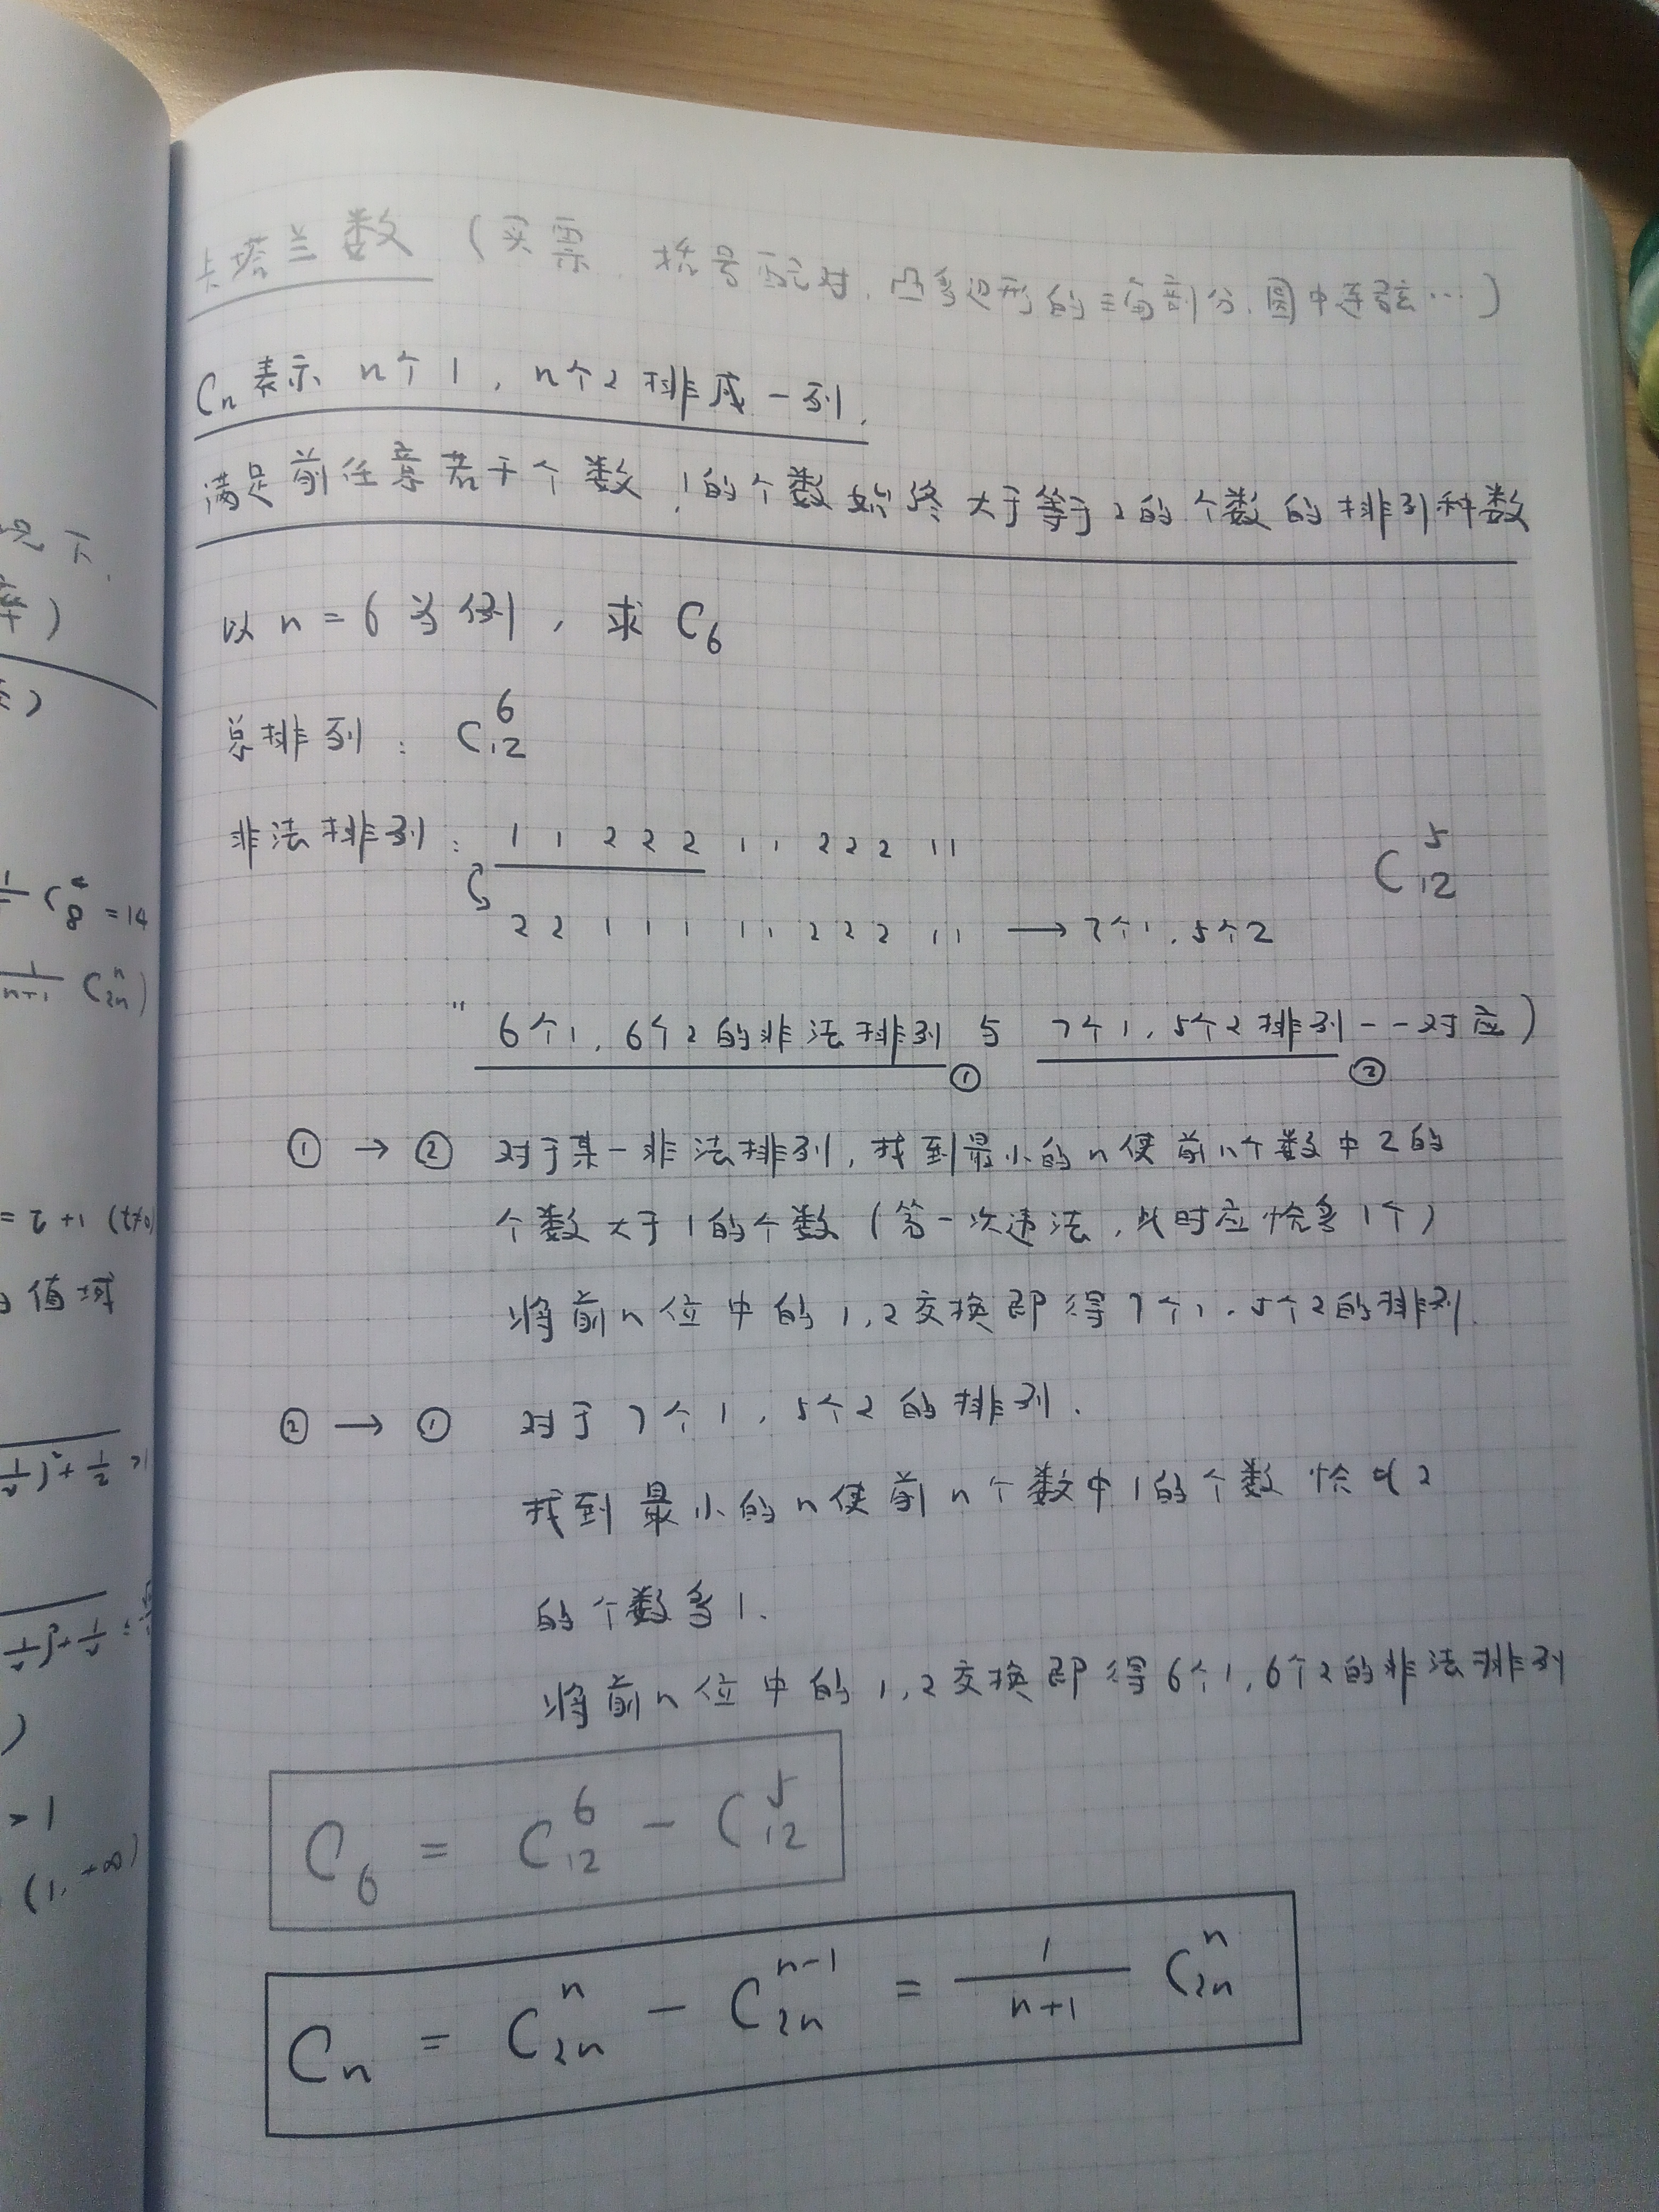 卡塔兰数（买票、括号配对、凸多边形的三角剖分、圆中连弦…）
Cn表示 n个1，n个2排成一列，
满足前任意若干个数，1的个数始终大于等于2的个数的排列种数
以n=6为例，求C6
总排列：C₁₂⁶
非法排列：1 1 2 2 2 1 1 2 2 2 1 1
C₁₂⁵
2 2 1 1 1 1 1 2 2 2 1 1 → 7个1，5个2
"6个1，6个2的非法排列与7个1，5个2排列一一对应）
① ②
① → ② 对于某一非法排列，找到最小的n使前n个数中2的
个数大于1的个数（第一次违法，此时应恰多1个）
将前n位中的1,2交换即得7个1，5个2的排列.
② → ① 对于7个1，5个2的排列.
找到最小的n使前n个数中1的个数恰比2
的个数多1.
将前n位中的1,2交换即得6个1，6个2的非法排列
C₆ = C₁₂⁶ − C₁₂⁵
Cn = C₂ₙⁿ − C₂ₙⁿ⁻¹ = 1/(n+1) C₂ₙⁿ
况下.
率）
C₈⁴ = 14
1/(n+1) C₂ₙⁿ)
= t+1 (t≠0)
值域
>1
(1, +∞)